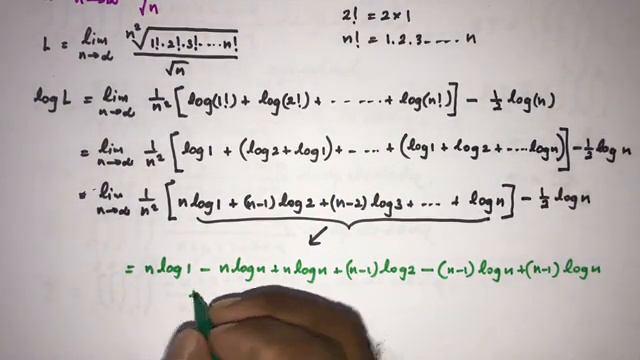 √n
2! = 2×1
L = lim n→∞ n²√(1!·2!·3!·----n!) / √n
n! = 1.2.3----. n
log L = lim n→∞ 1/n² [log(1!) + log(2!) + - - ---- + log(n!)] - 1/2 log(n)
= lim n→∞ 1/n² [log1 + (log2+log1)+ - -- + (log1 + log2 +----logn)] - 1/2 log n
= lim n→∞ 1/n² [n log1 + (n-1) log2 + (n-2) log3 + --- + logn] - 1/2 logn
= n log1 - n logn + n logn + (n-1) log2 - (n-1) logn + (n-1) logn